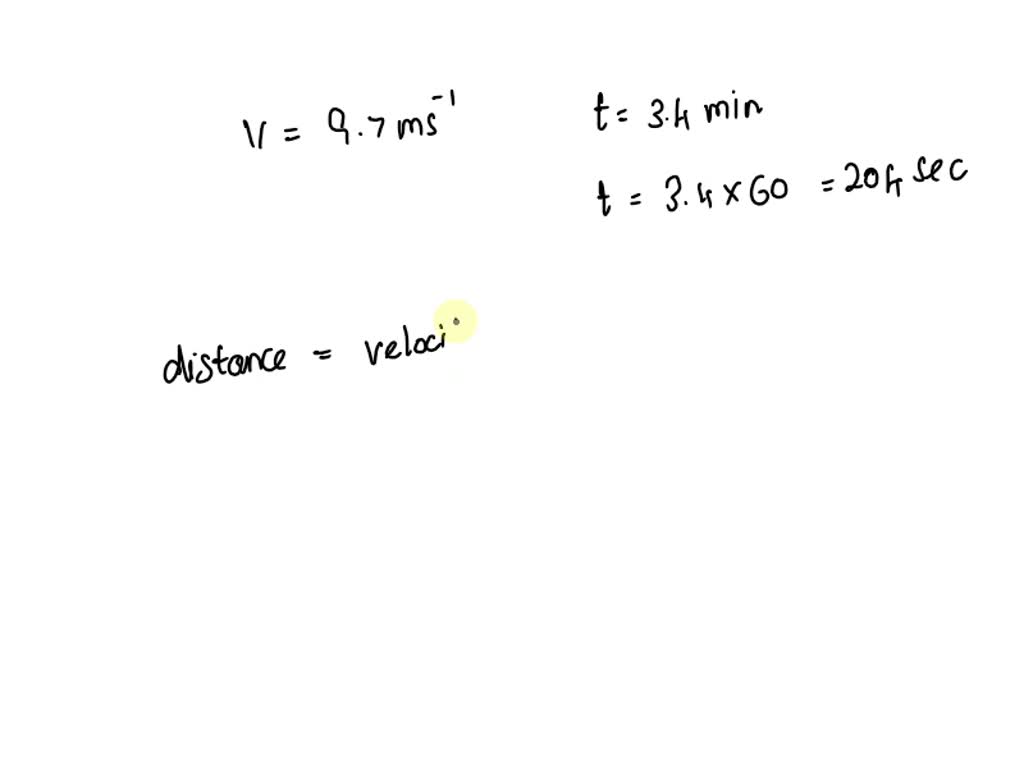 V = 9.7 ms⁻¹
t = 3.4 min
t = 3.4 × 60 = 204 sec
distance = veloci